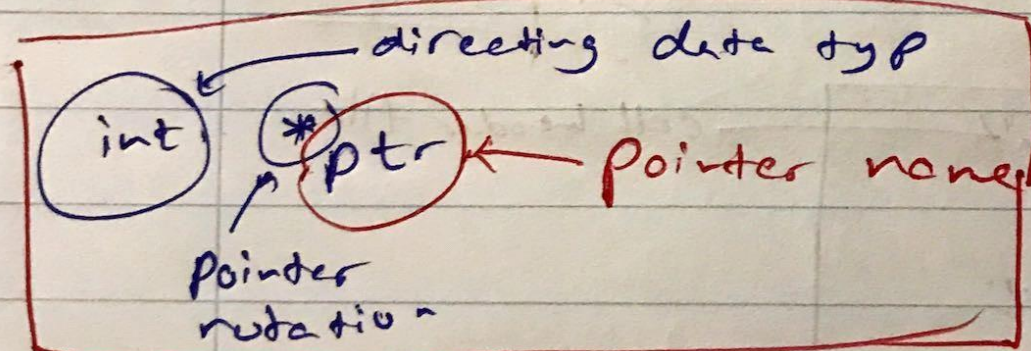 directing data typ
int * ptr pointer name
pointer
notation